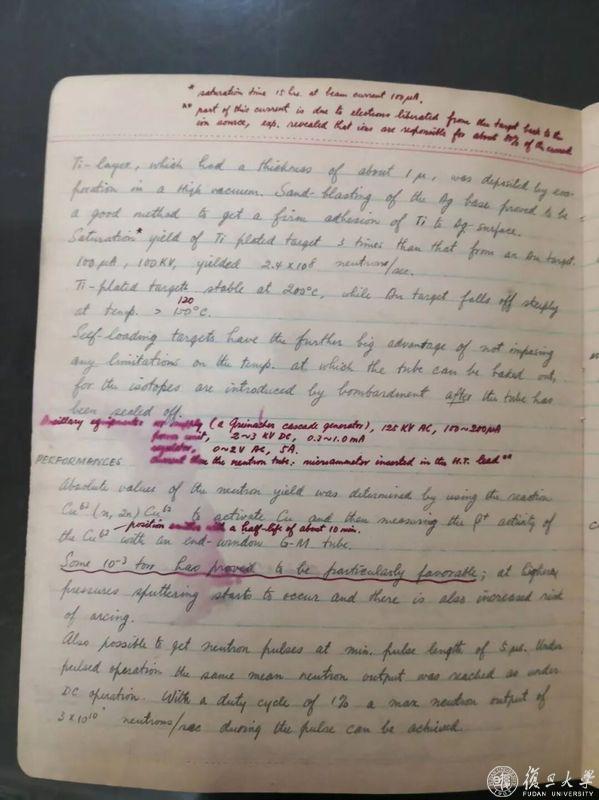 * saturation time 15 hrs. at beam current 100 μA.
** part of this current is due to electrons liberated from the target back to the
ion source, exp. revealed that ions are responsible for about 80% of the current
Ti-layer, which had a thickness of about 1 μ, was deposited by eva-
poration in a high vacuum. Sand-blasting of the Ag base proved to be
a good method to get a firm adhesion of Ti to Ag-surface.
Saturation* yield of Ti plated target 3 times than that from an Au target.
100 μA, 100 KV, yielded 2.4 × 10⁸ neutrons/sec.
Ti-plated targets stable at 200°C, while Au target falls off steeply
120
at temp. > °C.
Self-loading targets have the further big advantage of not imposing
any limitations on the temp. at which the tube can be baked out,
for the isotopes are introduced by bombardment after the tube has
been sealed off.
Ancillary equipments supply (a Greinacher cascade generator), 125 KV AC, 150~200μA
power unit, 2~3 KV DC, 0.3~1.0 mA
regulator, 0~2V AC, 5A.
current thro the neutron tube: microammeter inserted in the H.T. lead**
PERFORMANCES
Absolute values of the neutron yield was determined by using the reaction
Cu⁶³ (n, 2n) Cu⁶² to activate Cu and then measuring the β⁺ activity of
position with a half-life of about 10 min.
the Cu⁶² with an end-window G-M tube.
Some 10⁻³ torr has proved to be particularly favorable; at higher
pressures sputtering starts to occur and there is also increased risk
of arcing.
Also possible to get neutron pulses at min. pulse length of 5 μs. Under
pulsed operation the same mean neutron output was reached as under
DC operation. With a duty cycle of 1% a max neutron output of
3 × 10¹⁰ neutrons/sec during the pulse can be achieved.
復旦大學
FUDAN UNIVERSITY